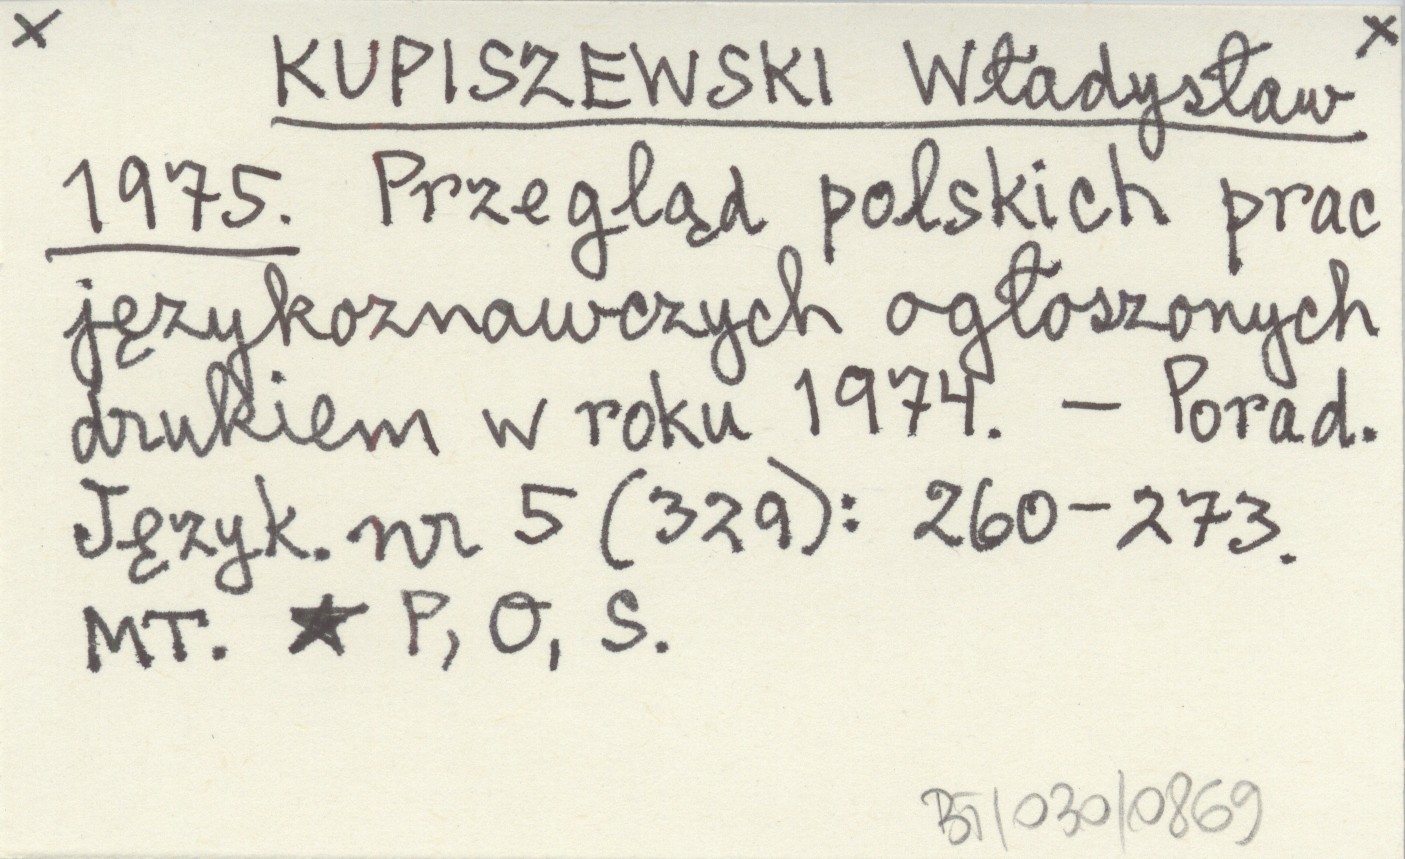 x x
KUPISZEWSKI Władysław
1975. Przegląd polskich prac
językoznawczych ogłoszonych
drukiem w roku 1974. – Porad.
Język. nr 5 (329): 260–273.
MT. ★ P, O, S.
BT/030/0869